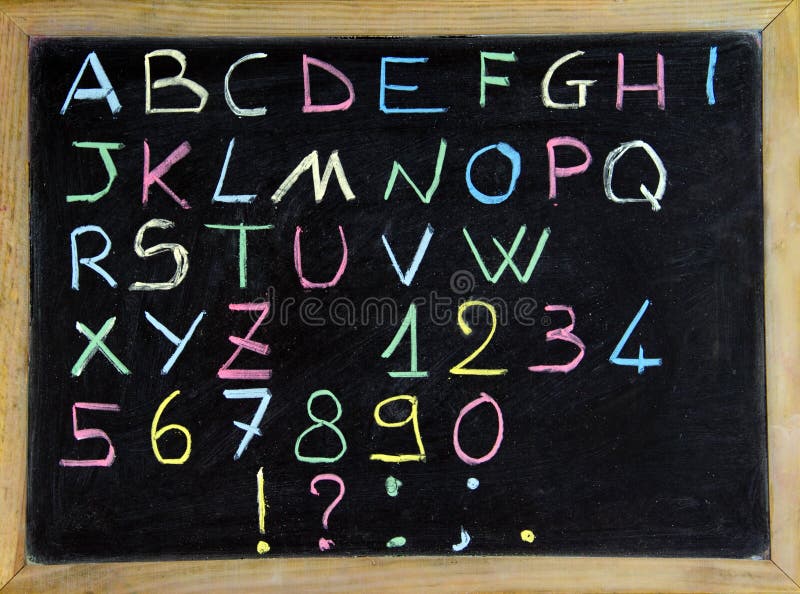 A B C D E F G H I
J K L M N O P Q
R S T U V W
X Y Z 1 2 3 4
5 6 7 8 9 0
! ? : ; .
dreamstime.com